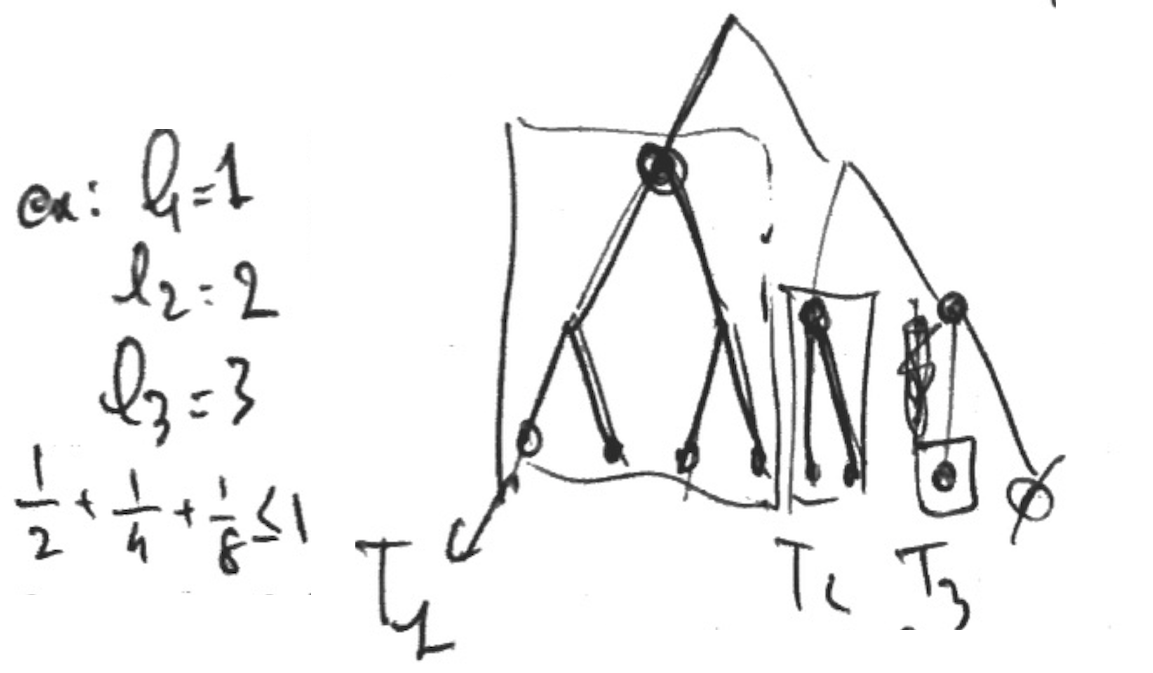 ex: l₁=1
l₂=2
l₃=3
1/2 + 1/4 + 1/8 ≤ 1
T₁
T₂
T₃